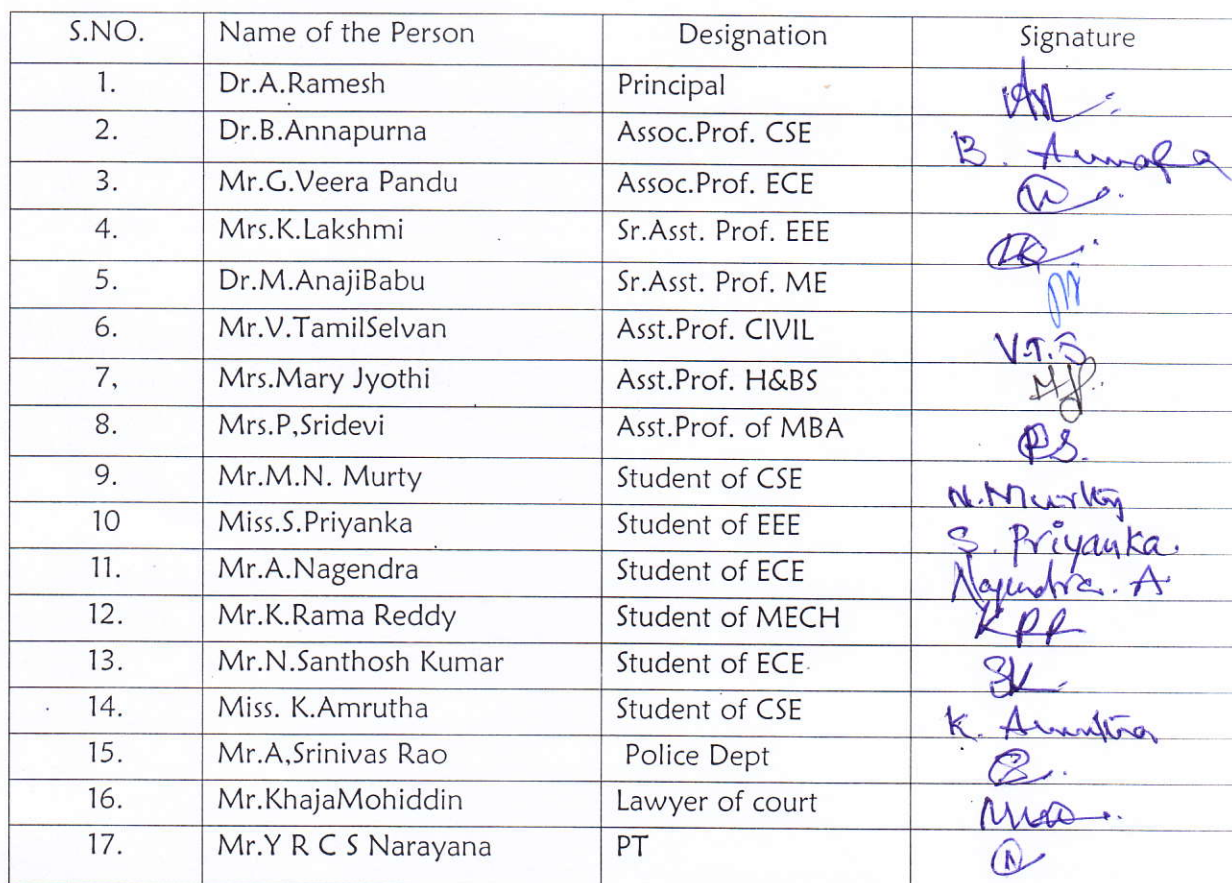 S.NO. Name of the Person Designation Signature
1. Dr.A.Ramesh Principal
2. Dr.B.Annapurna Assoc.Prof. CSE B.
3. Mr.G.Veera Pandu Assoc.Prof. ECE
4. Mrs.K.Lakshmi Sr.Asst. Prof. EEE
5. Dr.M.AnajiBabu Sr.Asst. Prof. ME
6. Mr.V.TamilSelvan Asst.Prof. CIVIL V.T.S
7, Mrs.Mary Jyothi Asst.Prof. H&BS
8. Mrs.P,Sridevi Asst.Prof. of MBA P.S.
9. Mr.M.N. Murty Student of CSE N.Murty
10 Miss.S.Priyanka Student of EEE S. Priyanka.
11. Mr.A.Nagendra Student of ECE Nagendra. A
12. Mr.K.Rama Reddy Student of MECH
13. Mr.N.Santhosh Kumar Student of ECE SK
14. Miss. K.Amrutha Student of CSE K. Amrutha
15. Mr.A,Srinivas Rao Police Dept
16. Mr.KhajaMohiddin Lawyer of court
17. Mr.Y R C S Narayana PT N